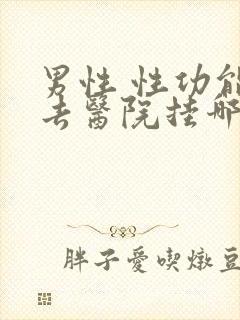 男性 性功能
去醫院挂哪
胖子愛喫燉豆